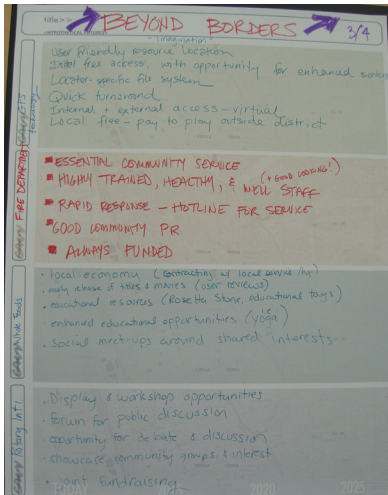 title>>
BEYOND BORDERS
3/4
(imagination)
User friendly resource location
free access, with opportunity for enhanced
Locater-specific file system
Quick turnaround
Internal + external access - virtual
Local free - pay to play outside district
technology
FIRE DEPARTMENT
ESSENTIAL COMMUNITY SERVICE
HIGHLY TRAINED, HEALTHY, & WELL STAFF
(+ GOOD LOOKING!)
RAPID RESPONSE - HOTLINE FOR SERVICE
GOOD COMMUNITY PR
ALWAYS FUNDED
Whole Foods
· local economy (contracting w/ local
· early release of titles & movies (user reviews)
· educational resources (Rosetta Stone, educational toys)
· enhanced educational opportunities (yoga)
· Social meet-ups around shared interests
Rotary Int'l.
· Display & workshop opportunities
· forum for public discussion
· opportunity for debate & discussion
· showcase community groups & interest
· joint fundraising
TODAY
2020
2025